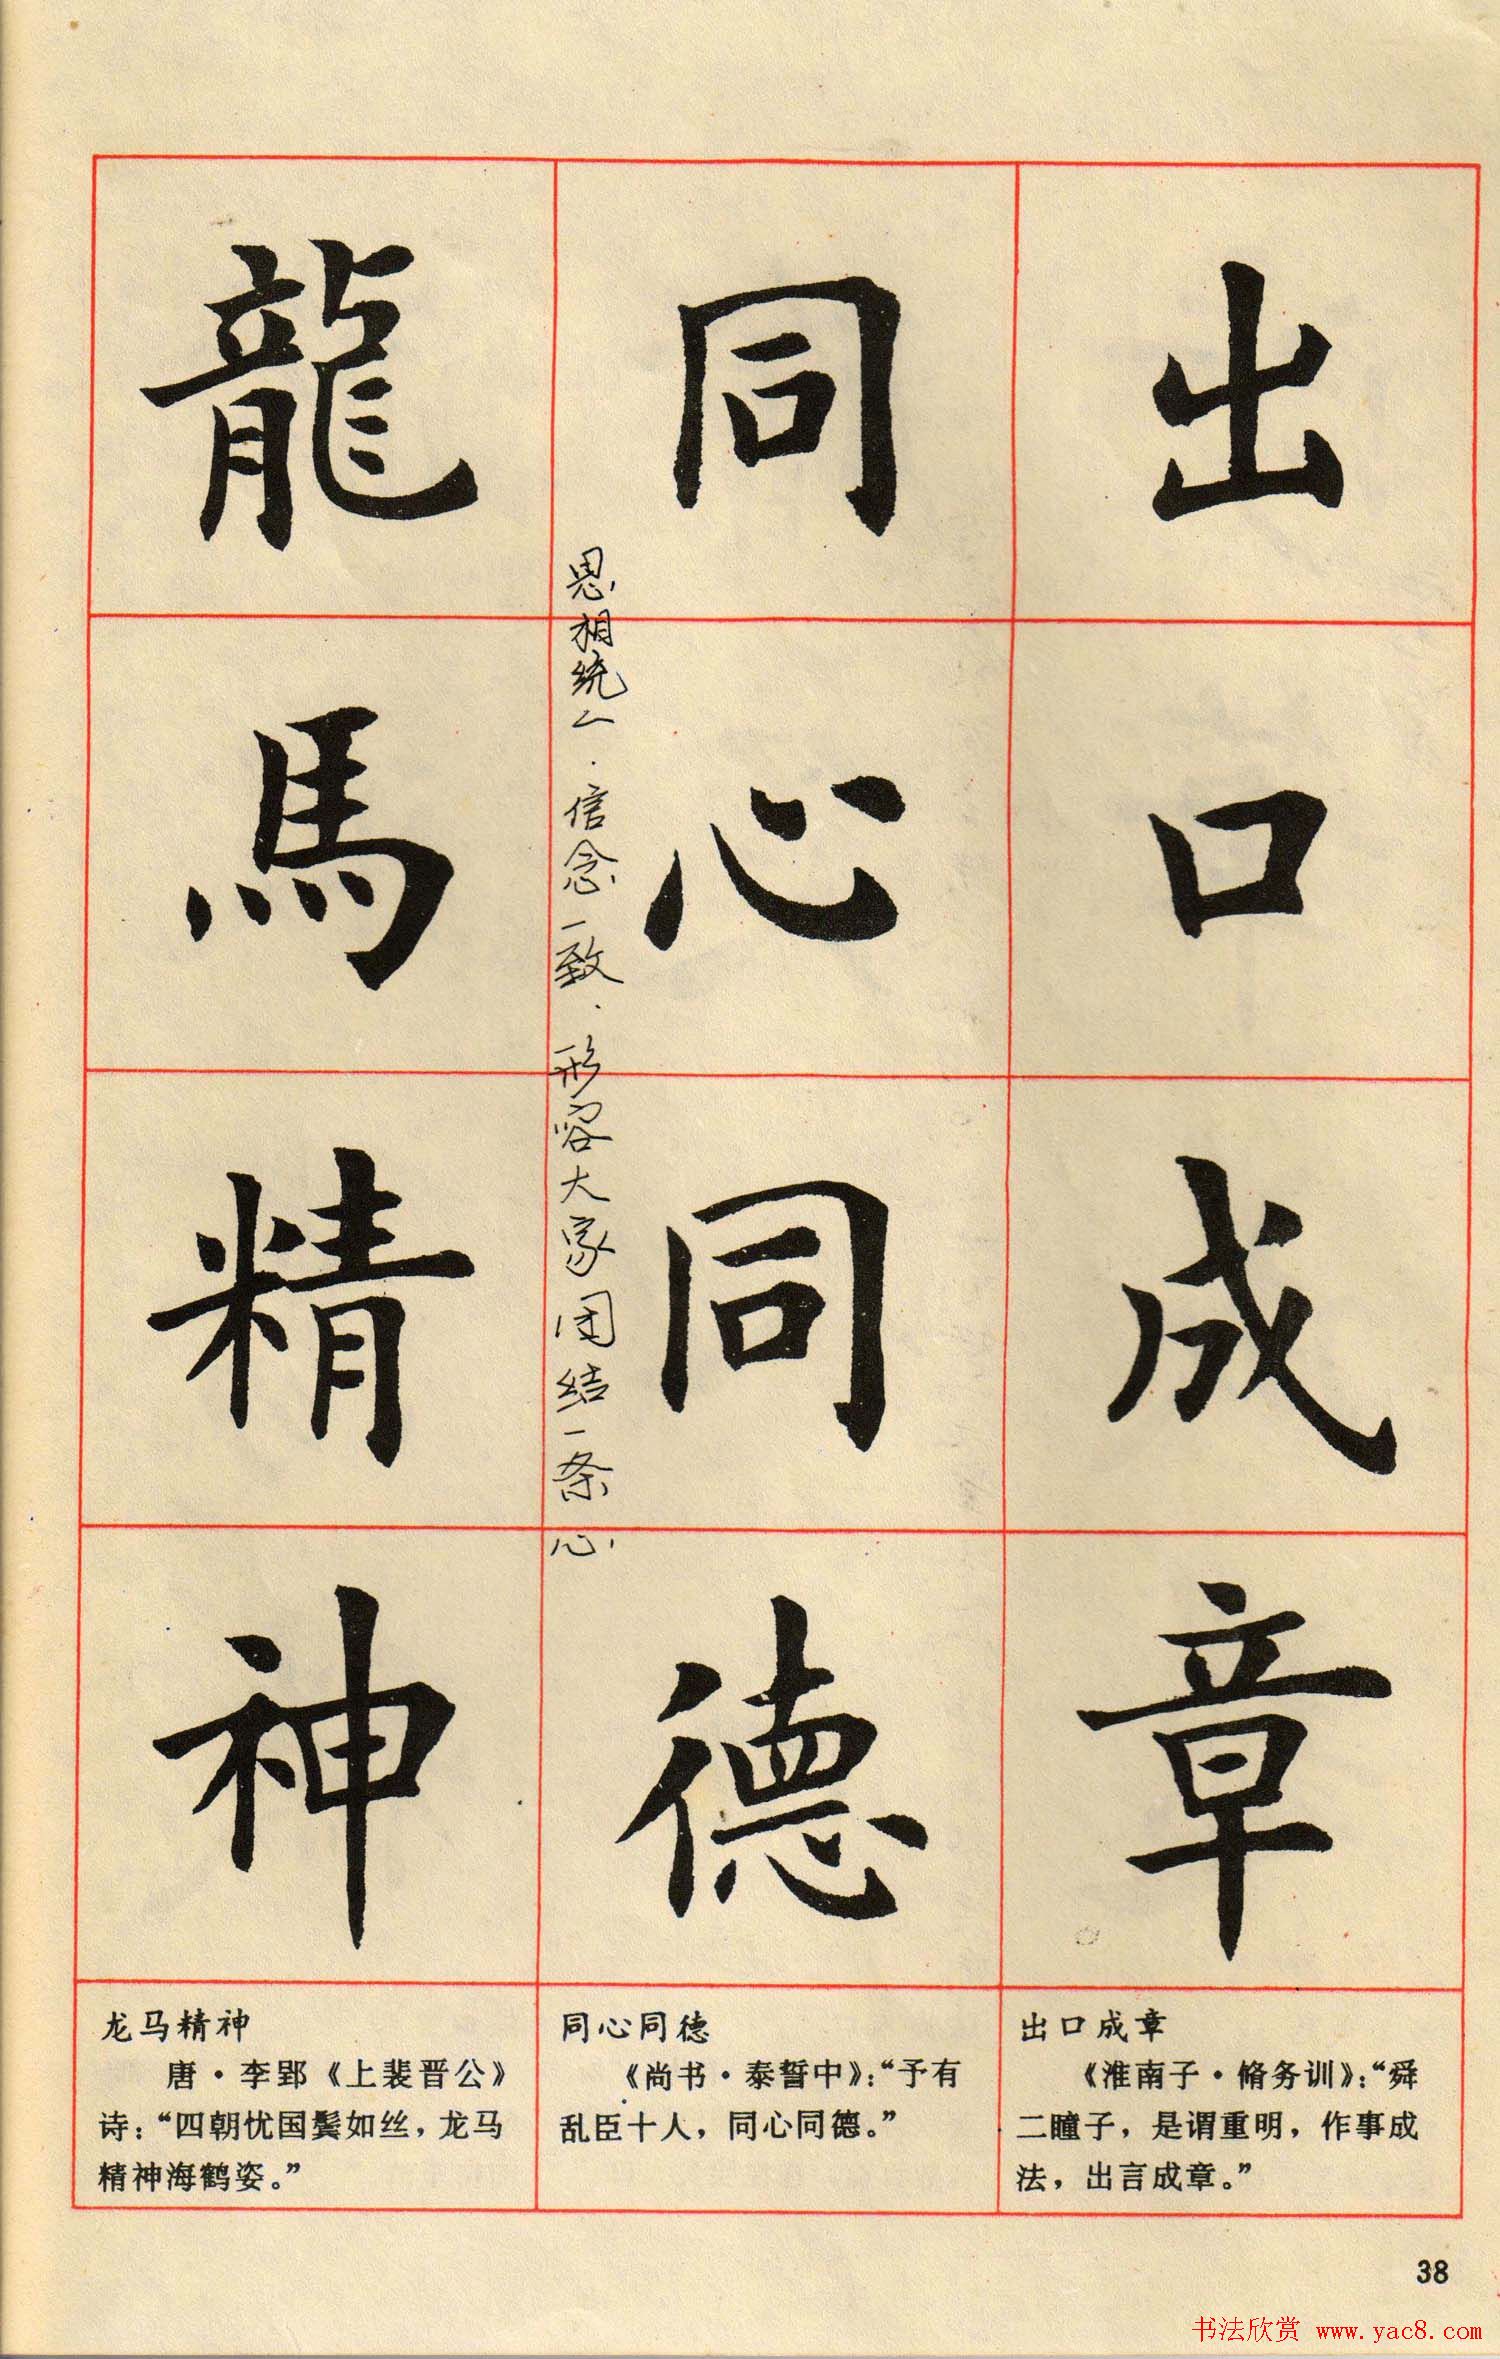 出口成章
同心同德
龍馬精神
思相统一.信念一致.形容大家团结一条心.
龙马精神
唐·李郢《上裴晋公》
诗：“四朝忧国鬓如丝，龙马
精神海鹤姿。”
同心同德
《尚书·泰誓中》：“予有
乱臣十人，同心同德。”
出口成章
《淮南子·脩务训》：“舜
二瞳子，是谓重明，作事成
法，出言成章。”
38
书法欣赏 www.yac8.com